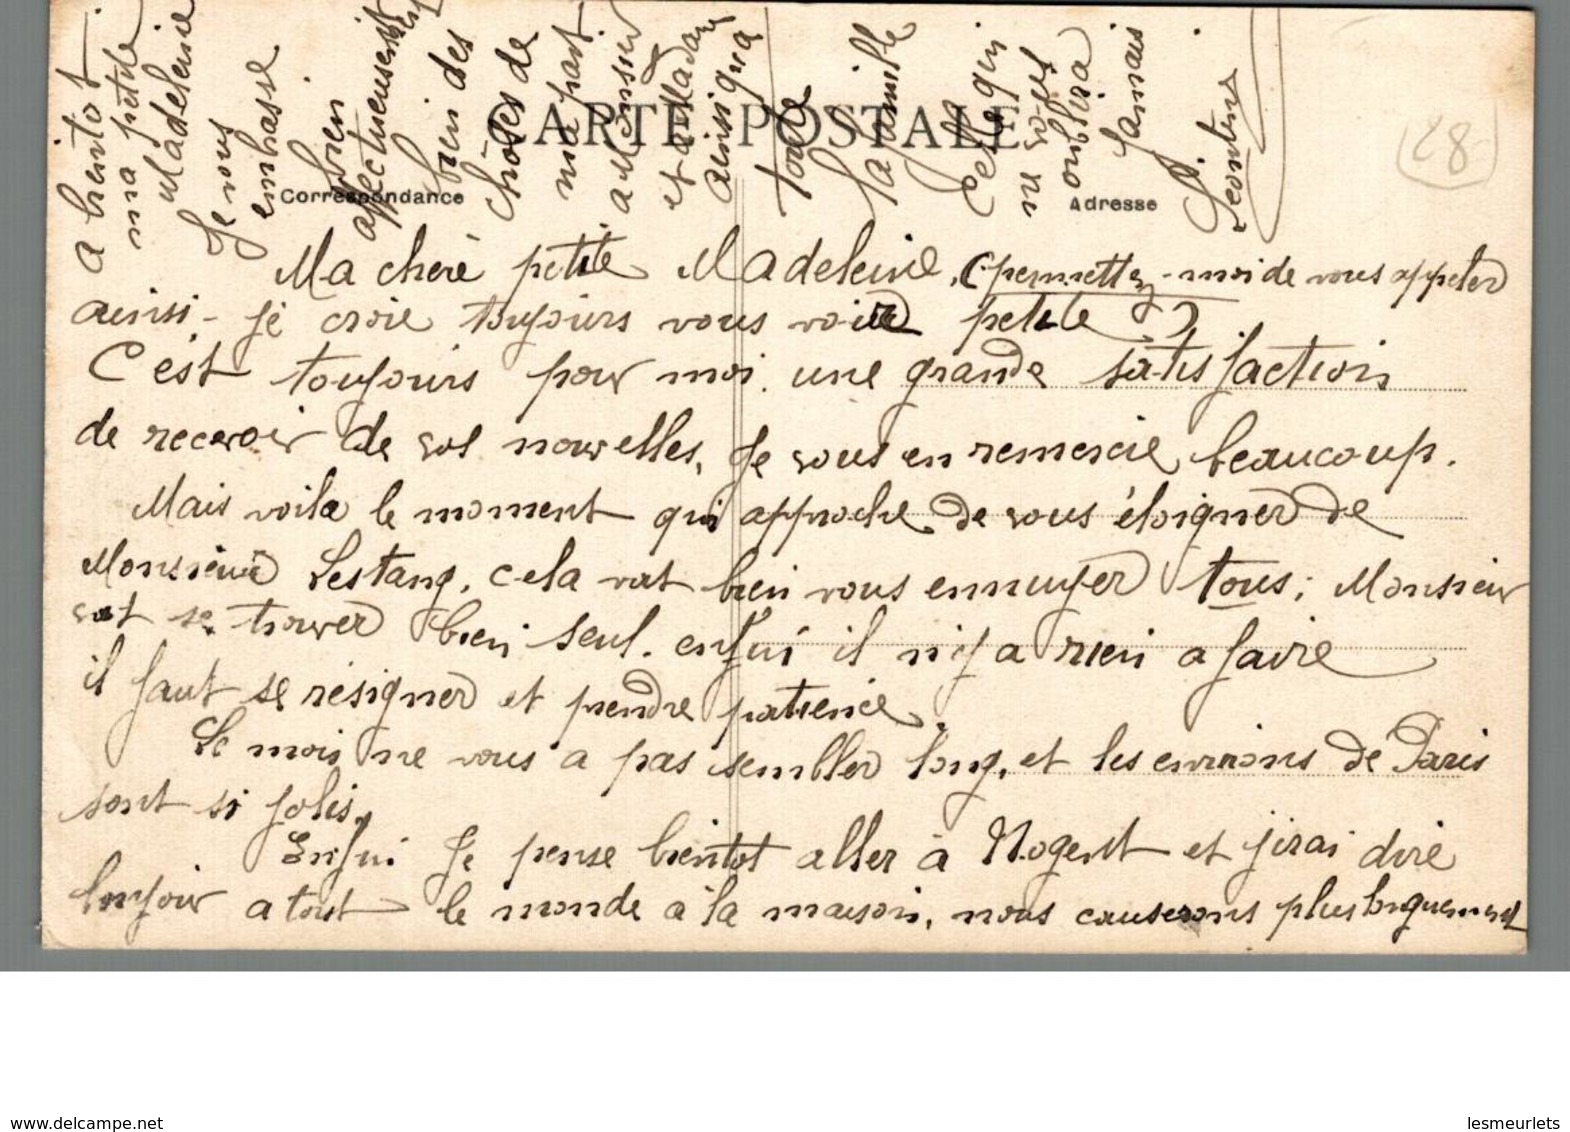 CARTE POSTALE
Correspondance
Adresse
28
Ma cheré petite Madeleine, (permettez-moi de vous appeler
ainsi - je croie toujours vous voire petite)
C'est toujours pour moi une grande satisfaction
de recevoir de vos nouvelles, Je vous en remercie beaucoup.
Mais voila le moment qui approche de vous éloigner de
Monsieur Lestang, cela vat bien vous ennuyer tous; Monsieur
vat se trouver bien seul. enfin il n'y a rien a faire
il faut se résigner et prendre patience.
Le mois ne vous a pas sembller long, et les environs de Paris
sont si jolis.
Enfin Je pense bientot aller à Nogent et jirai dire
bonjour a tout le monde à la maison, nous causerons plus longuement
a bientot
ma petite
Madeleine
Je vous
embrasse
bien
affectueusement
bien des
choses de
ma part
a Monsieur
et Madame
ainsi qu'a
toute
la famille
Celle qui
ne vous
oublira
Jamais.
Léontine
www.delcampe.net
lesmeurlets